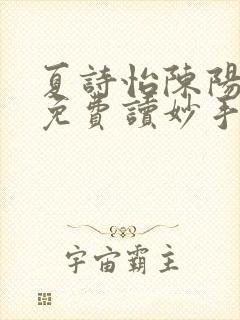 夏詩怡陳陽
免費讀妙手
宇宙霸主